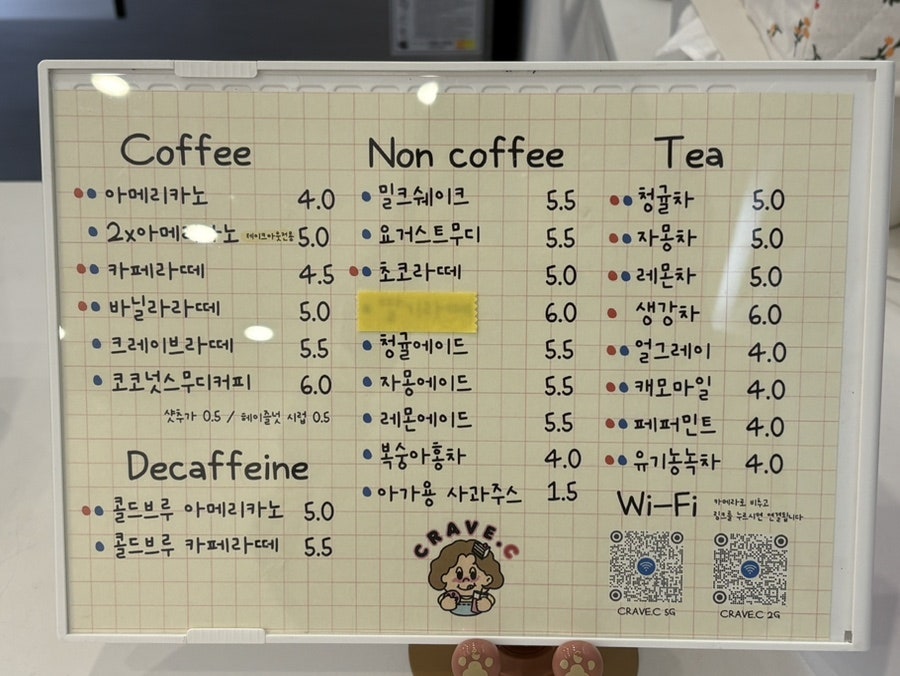 Coffee
아메리카노 4.0
2x아메리카노 테이크아웃전용 5.0
카페라떼 4.5
바닐라라떼 5.0
크레이브라떼 5.5
코코넛스무디커피 6.0
샷추가 0.5 / 헤이즐넛 시럽 0.5
Decaffeine
콜드브루 아메리카노 5.0
콜드브루 카페라떼 5.5
Non coffee
밀크쉐이크 5.5
요거스트무디 5.5
초코라떼 5.0
6.0
청귤에이드 5.5
자몽에이드 5.5
레몬에이드 5.5
복숭아홍차 4.0
아가용 사과주스 1.5
CRAVE.C
Tea
청귤차 5.0
자몽차 5.0
레몬차 5.0
생강차 6.0
얼그레이 4.0
캐모마일 4.0
페퍼민트 4.0
유기농녹차 4.0
Wi-Fi
카메라로 비추고
링크를 누르시면 연결됩니다
CRAVE.C 5G
CRAVE.C 2G